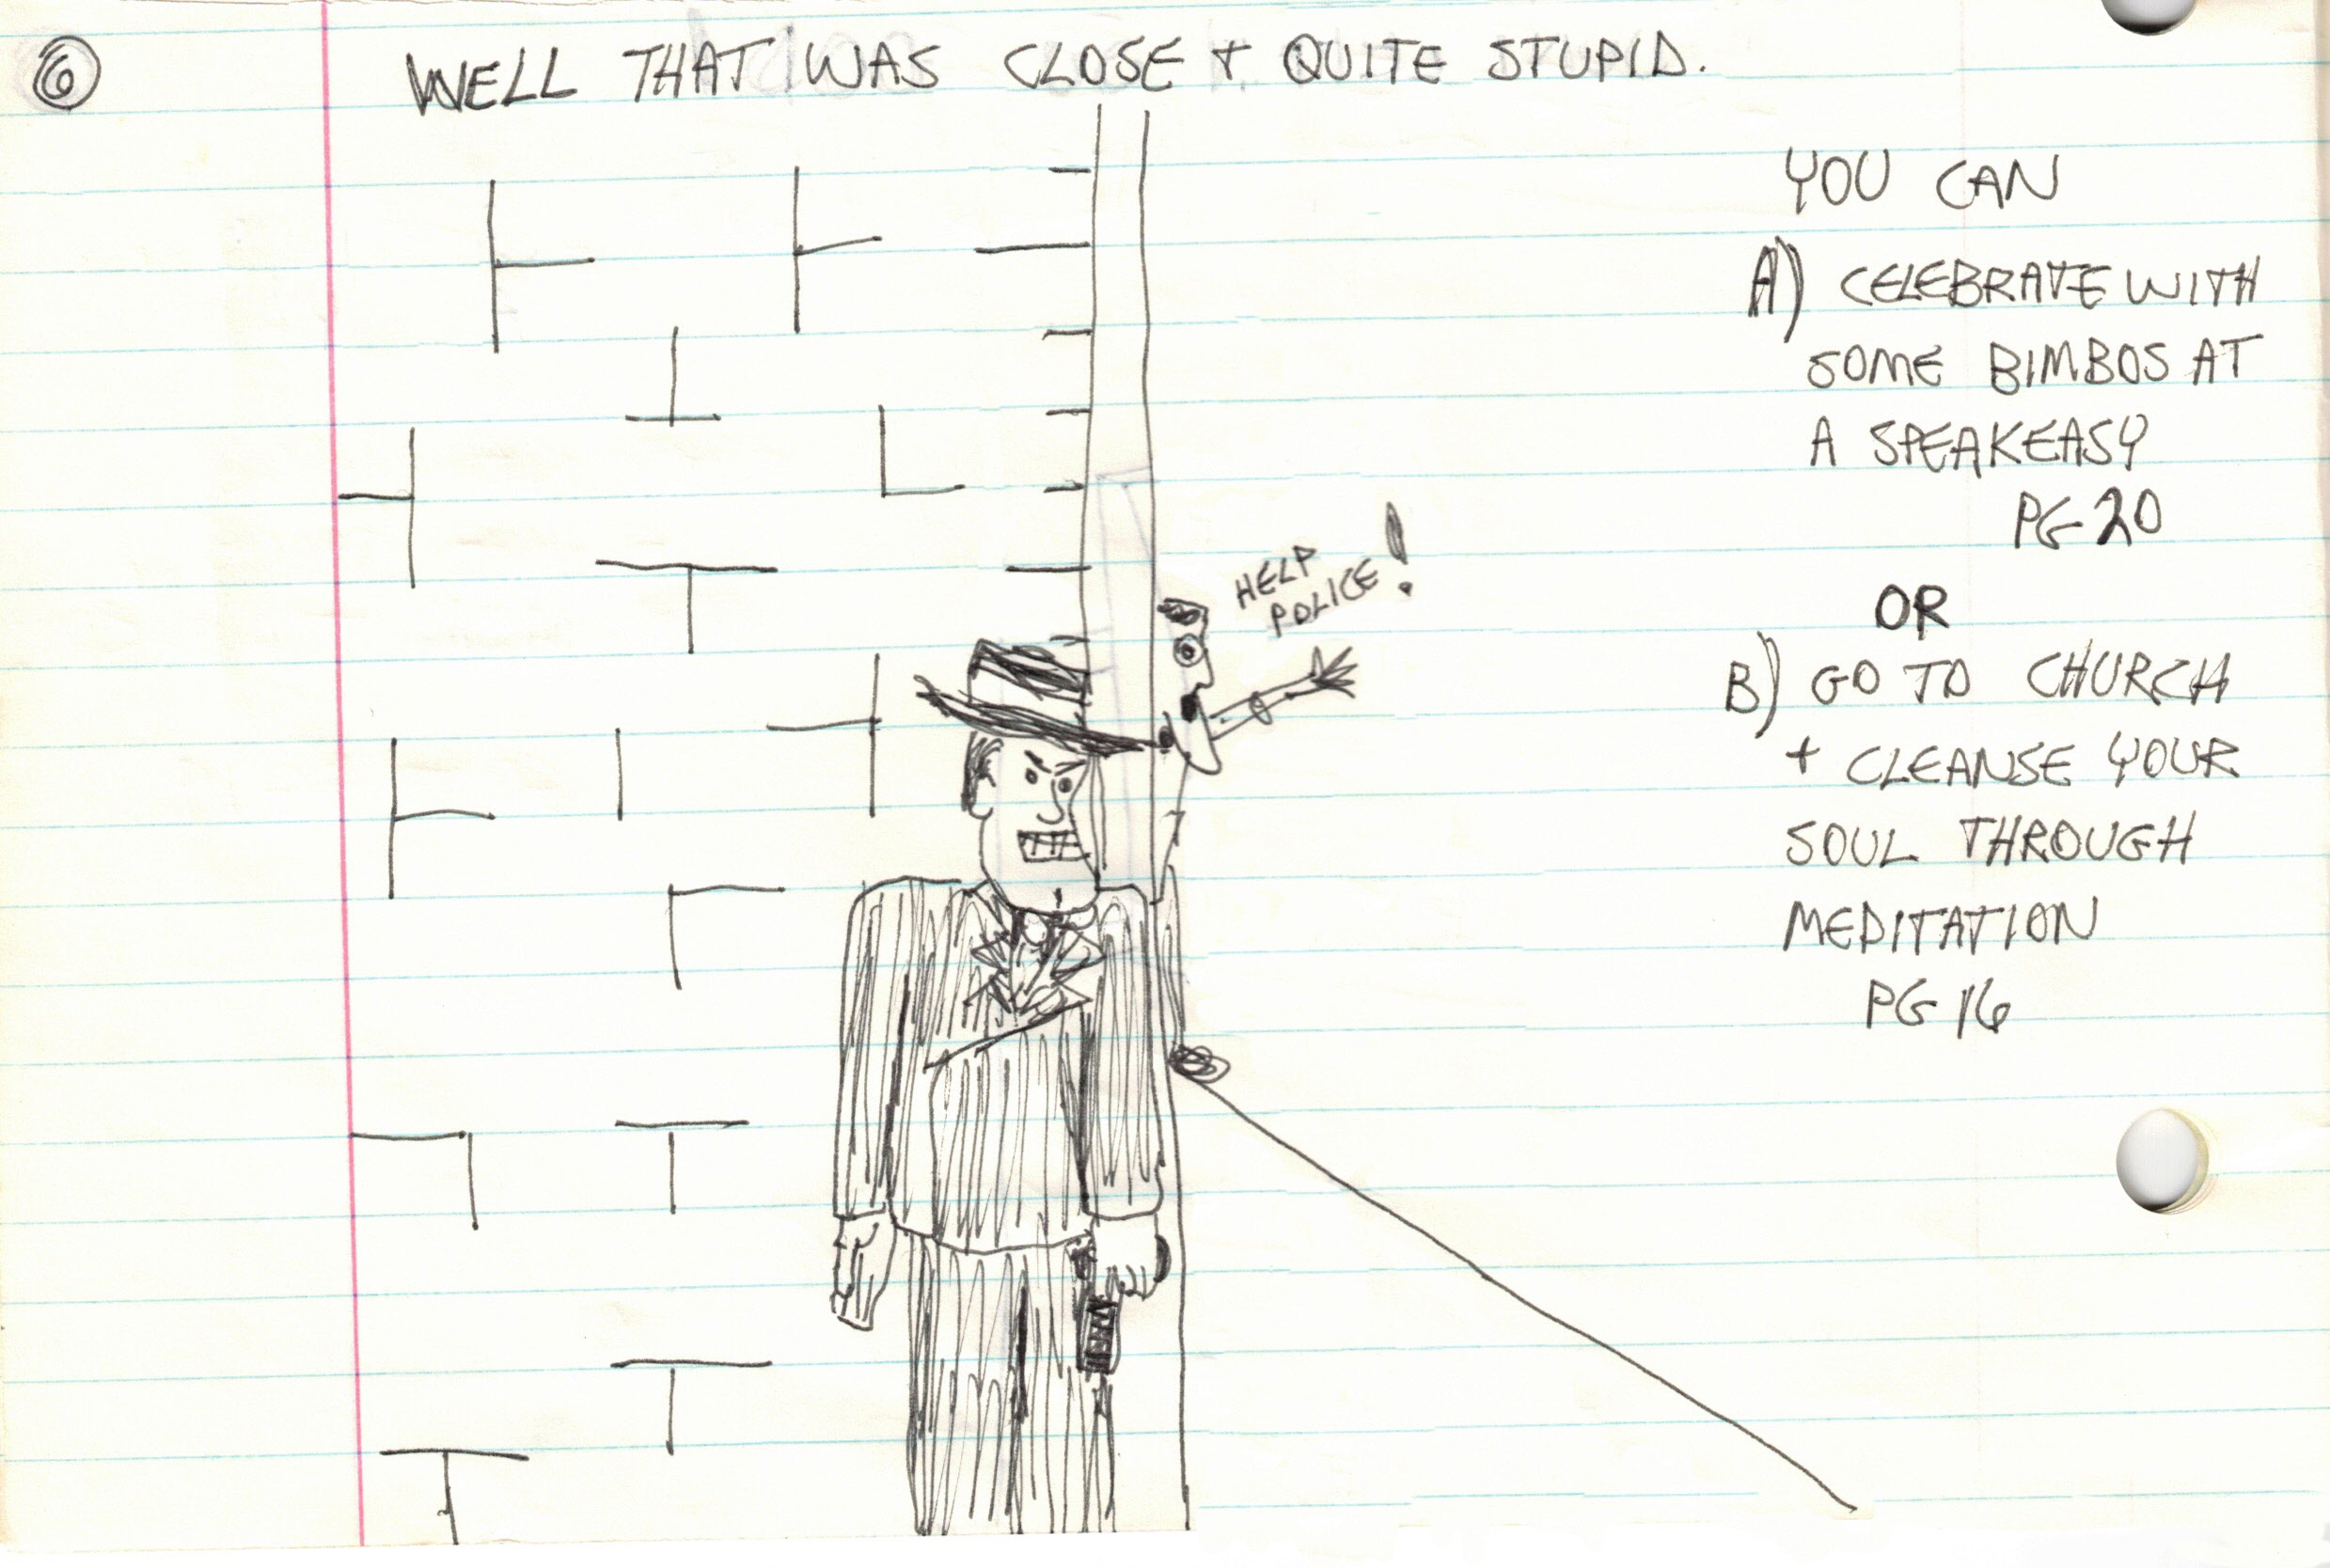 6
WELL THAT WAS CLOSE + QUITE STUPID.
YOU CAN
A) CELEBRATE WITH
SOME BIMBOS AT
A SPEAKEASY
PG 20
OR
B) GO TO CHURCH
+ CLEANSE YOUR
SOUL THROUGH
MEDITATION
PG 16
HELP
POLICE!